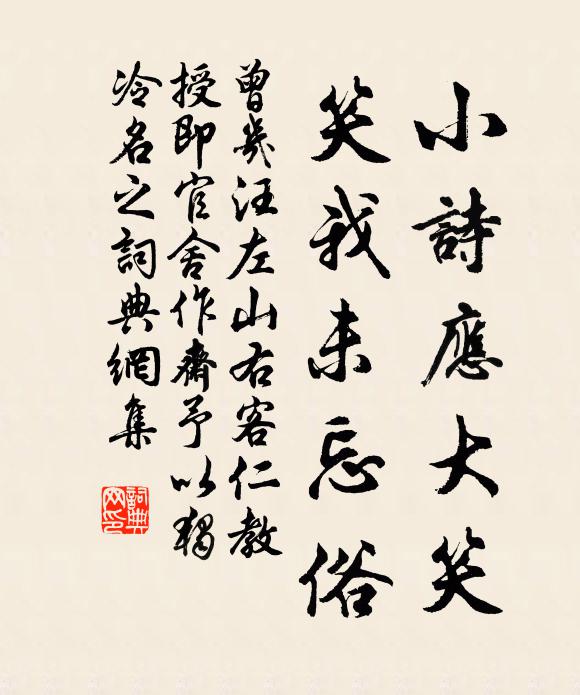 小詩應大笑
笑我未忘俗
曾幾汪左山右客仁教
授即官舍作齋予以獨
冷名之詞典網集
詞典网印